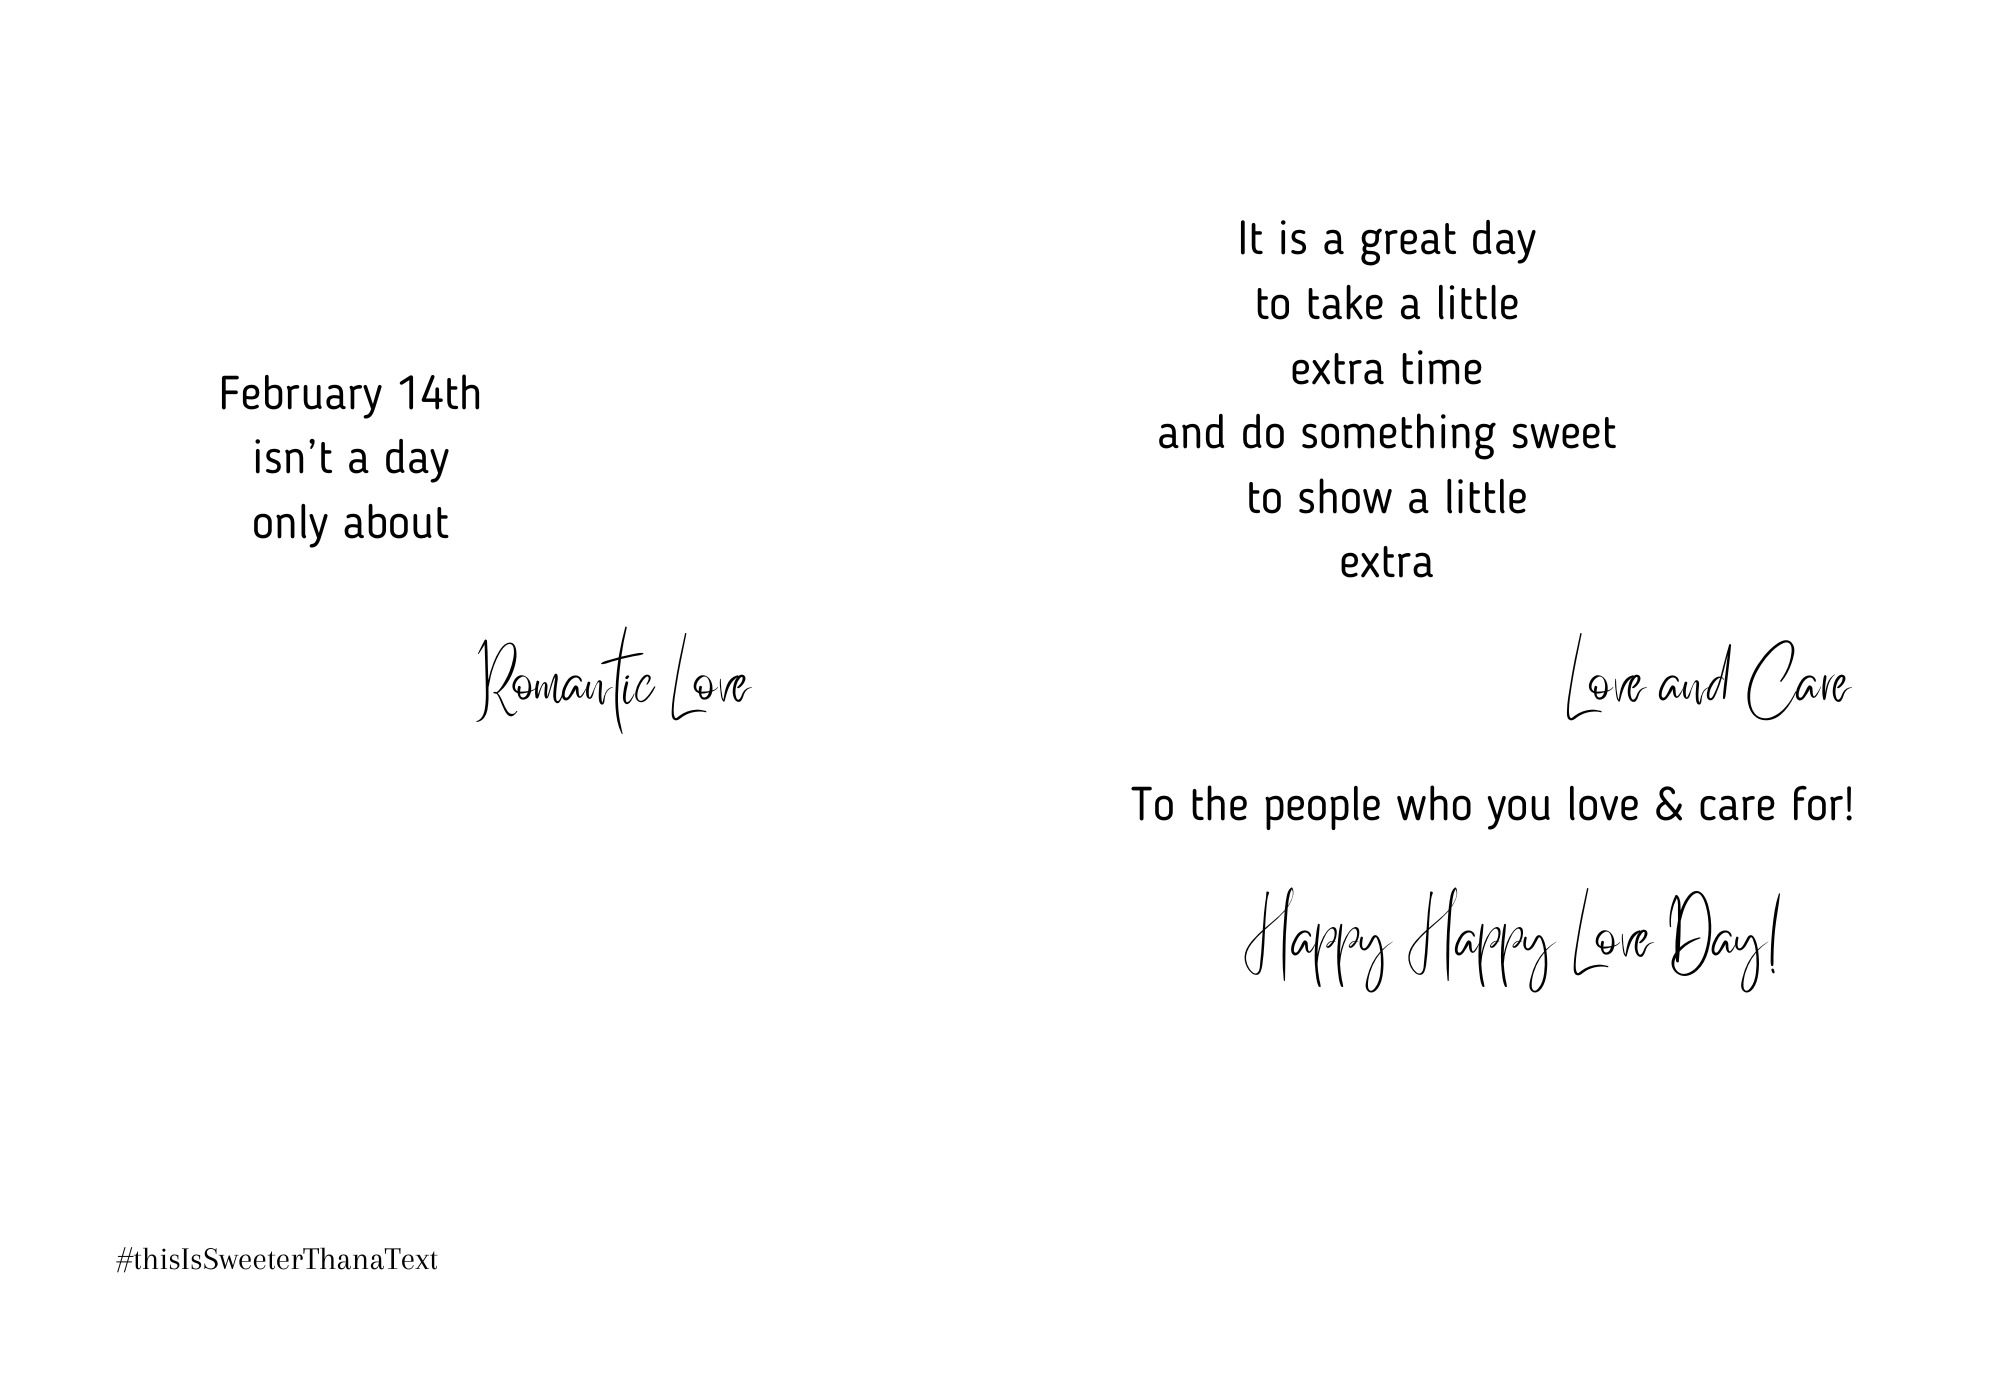 February 14th
isn’t a day
only about
Romantic Love
#thisIsSweeterThanaText
It is a great day
to take a little
extra time
and do something sweet
to show a little
extra
Love and Care
To the people who you love & care for!
Happy Happy Love Day!